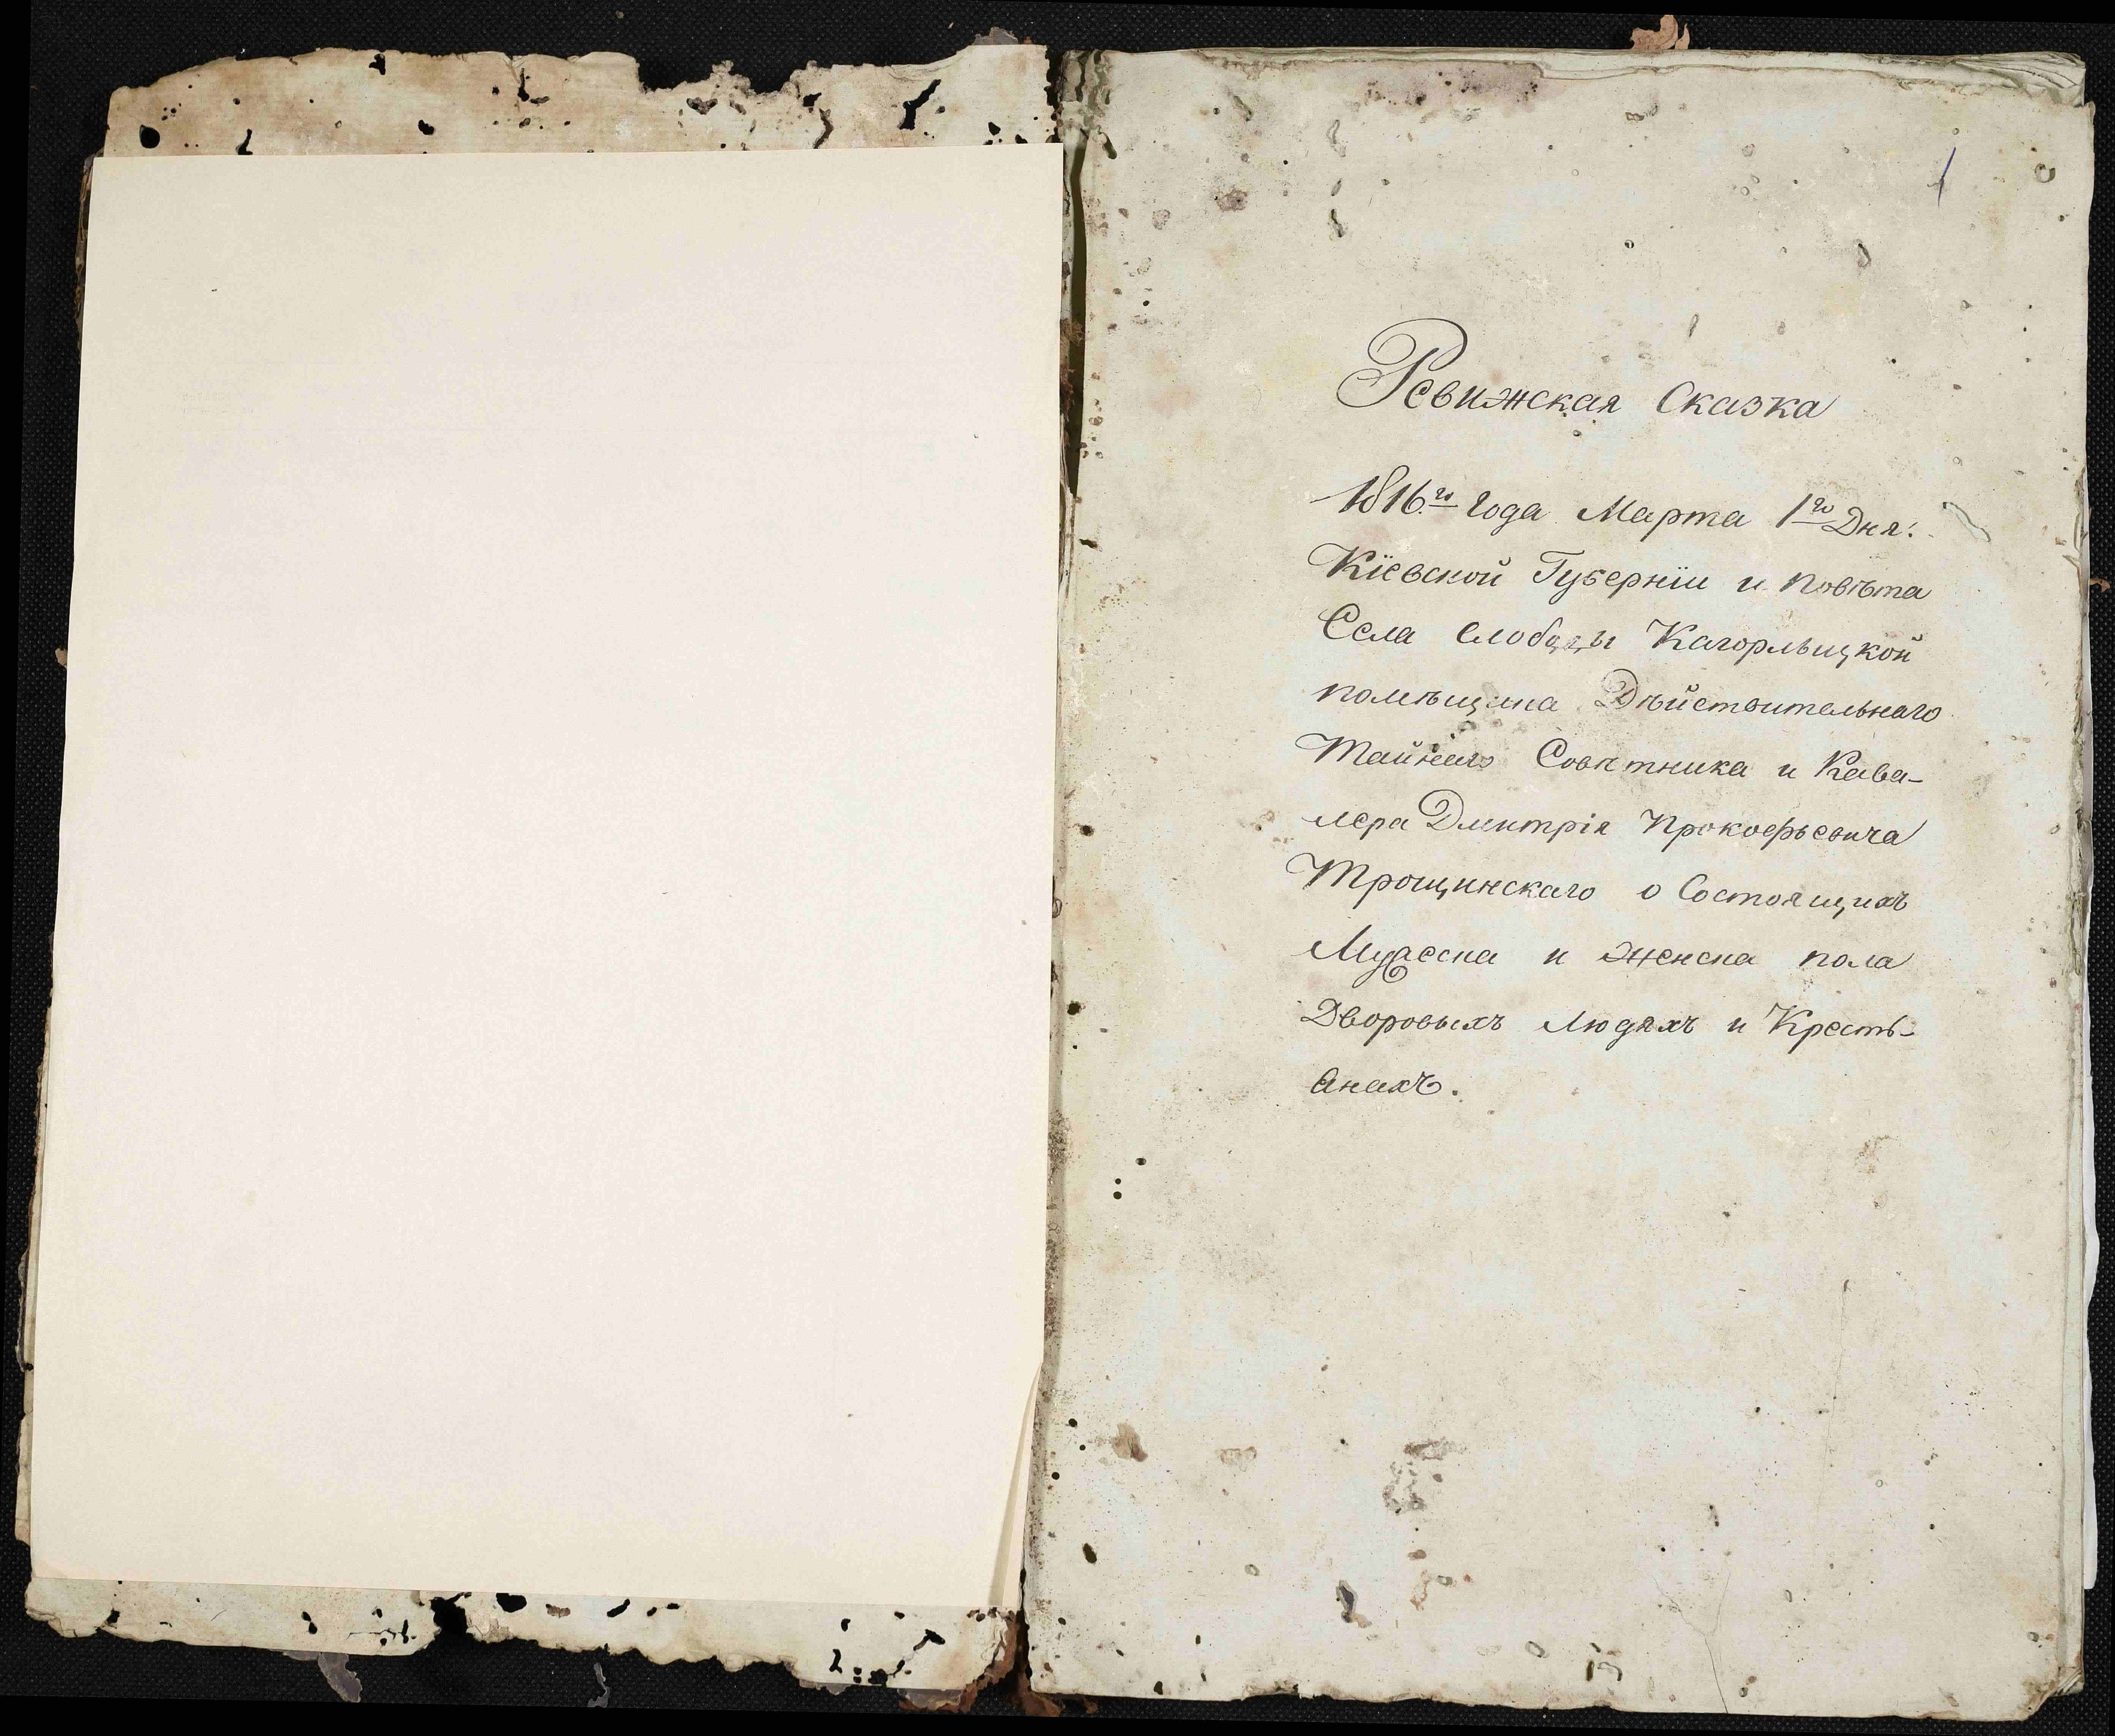 1
Ревижская Сказка
1816.го года Марта 1го Дня:
Кіевской Губерніи и повѣта
Села слободы Кагорлыцкой
помѣщика Дѣйствительнаго
Тайнаго Совѣтника и Кава-
лера Дмитрія Прокофьевича
Трощинскаго о Состоящихъ
Мужеска и женска пола
Дворовыхъ людяхъ и Кресть-
Анахъ.